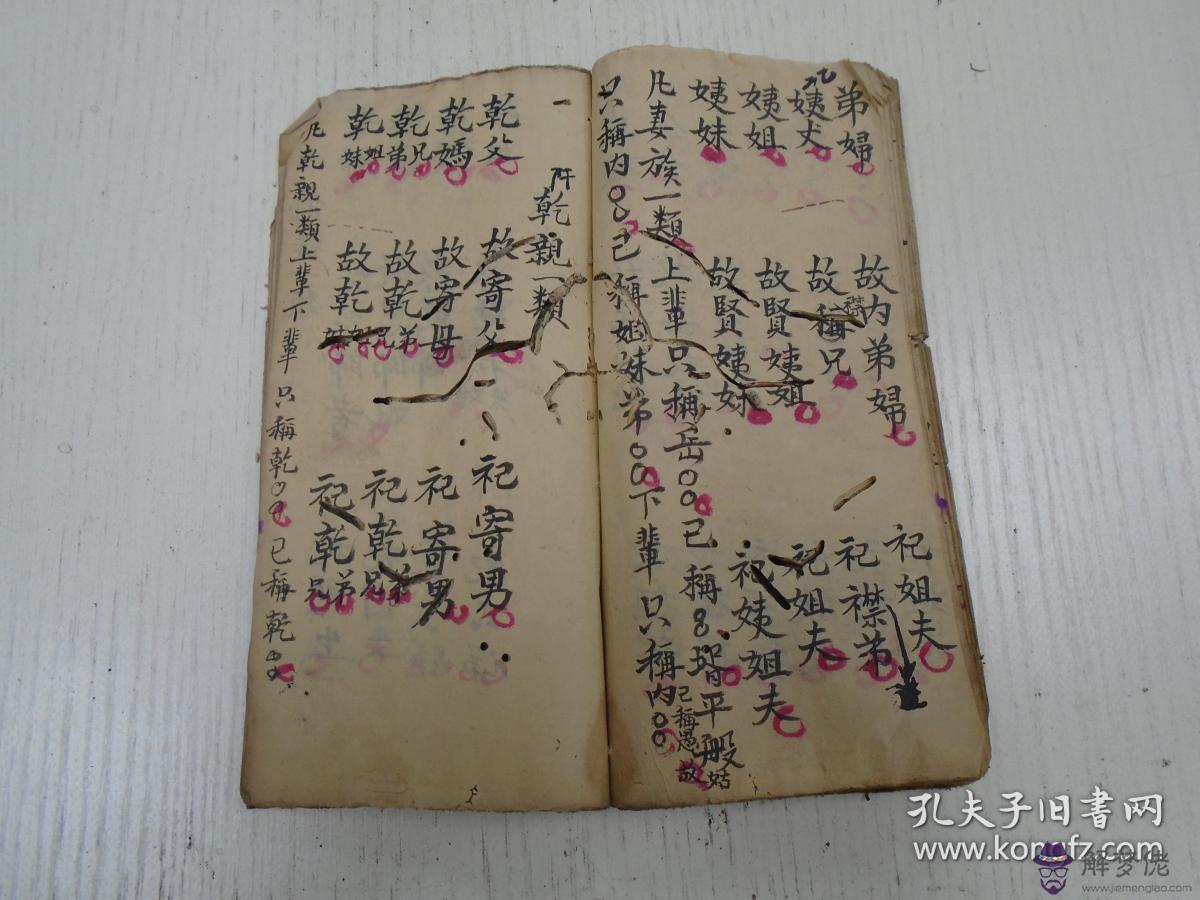 弟婦 故内弟婦 祀姐夫
姨夫 故稱兄 祀襟弟
襟
姨姐 故賢姨姐 祀姐夫
姨妹 故賢姨妹 祀姨姐夫
凡妻族一類上輩只稱岳〇〇己稱〇婿平般姑
只稱内〇〇己稱姐妹弟〇〇下輩只稱内〇〇
己稱愚故
一 乾親一類
乾父 故寄父 祀寄男
乾媽 故寄母 祀寄男
乾兄弟 故乾兄弟 祀乾兄弟
乾姐妹 故乾姐妹 祀乾兄弟
凡乾親一類上輩下輩只稱乾〇〇己稱乾〇〇
孔夫子旧书网
www.kongfz.com
解梦佬
www.jiemenglao.com